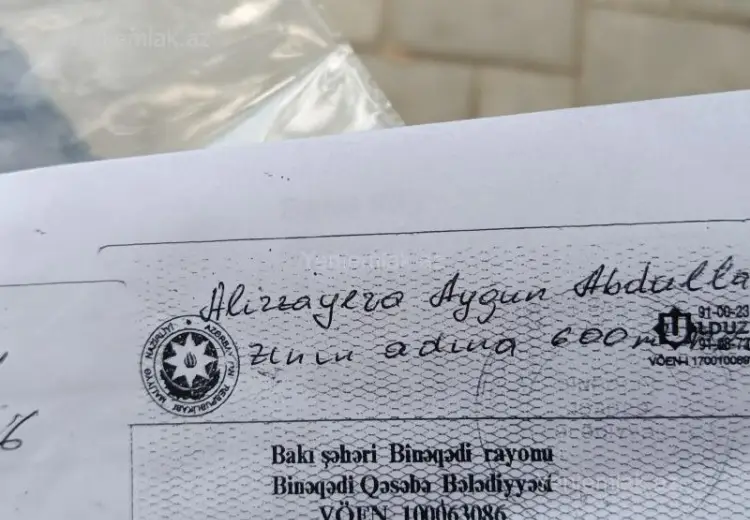 Yeniemlak.az
Yeniemlak.az
Alirzayeva Aygun Abdulla
zının adına 600m
91-00-23
ULDUZ
VÖEN-I 170010089
MALİYYƏ NAZİRLİYİ
AZƏRBAYCAN RESPUBLİKASI
6
Bakı şəhəri Binəqədi rayonu
Binəqədi Qəsəbə Bələdiyyəsi
VÖEN 100063086
Yeniemlak.az